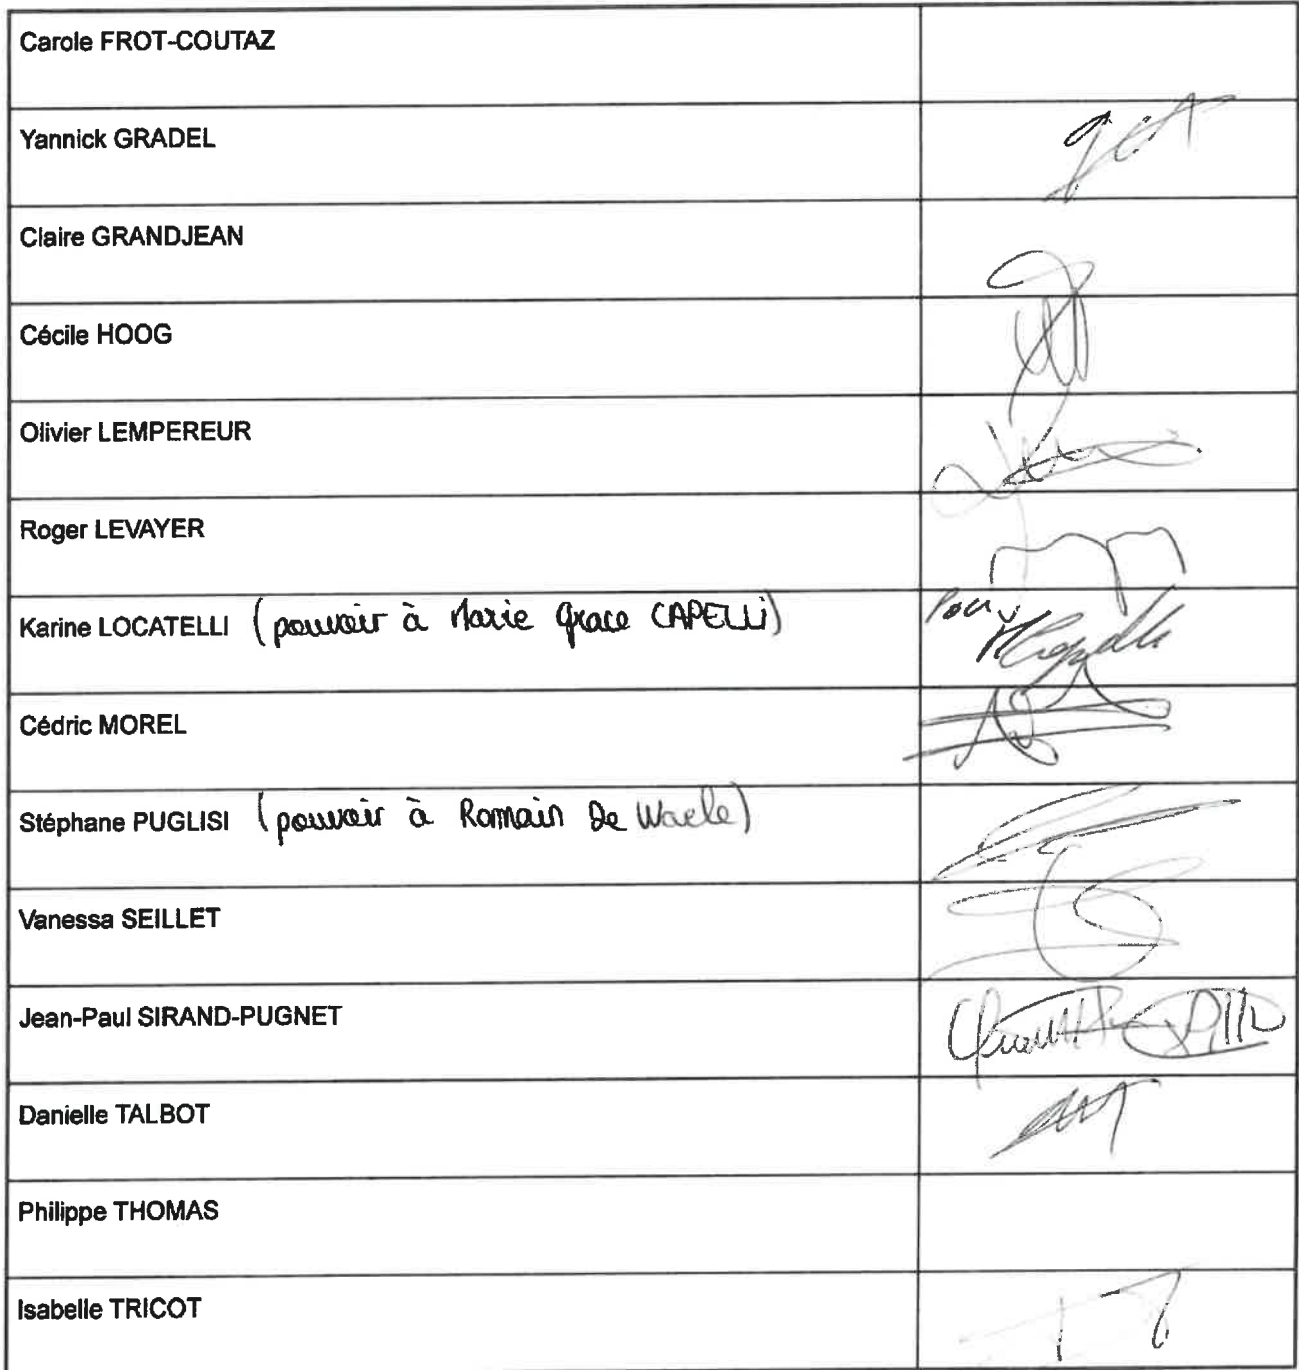 Carole FROT-COUTAZ
Yannick GRADEL
Claire GRANDJEAN
Cécile HOOG
Olivier LEMPEREUR
Roger LEVAYER
Karine LOCATELLI (pouvoir à Marie Grace CAPELLI)
Pour
Cédric MOREL
Stéphane PUGLISI (pouvoir à Romain De Waele)
Vanessa SEILLET
Jean-Paul SIRAND-PUGNET
Danielle TALBOT
Philippe THOMAS
Isabelle TRICOT